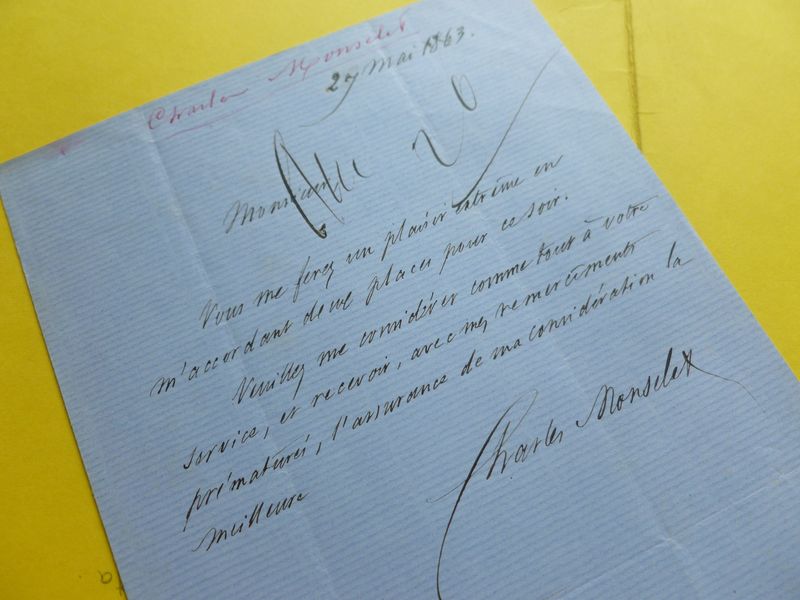 Charles Monselet
27 Mai 1863.
Monsieur
20
Vous me ferez un plaisir extrême en
m'accordant deux places pour ce soir.
Veuillez me considérer comme tout à votre
service, et recevoir, avec mes remerciments
prématurés, l'assurance de ma considération la
meilleure
Charles Monselet